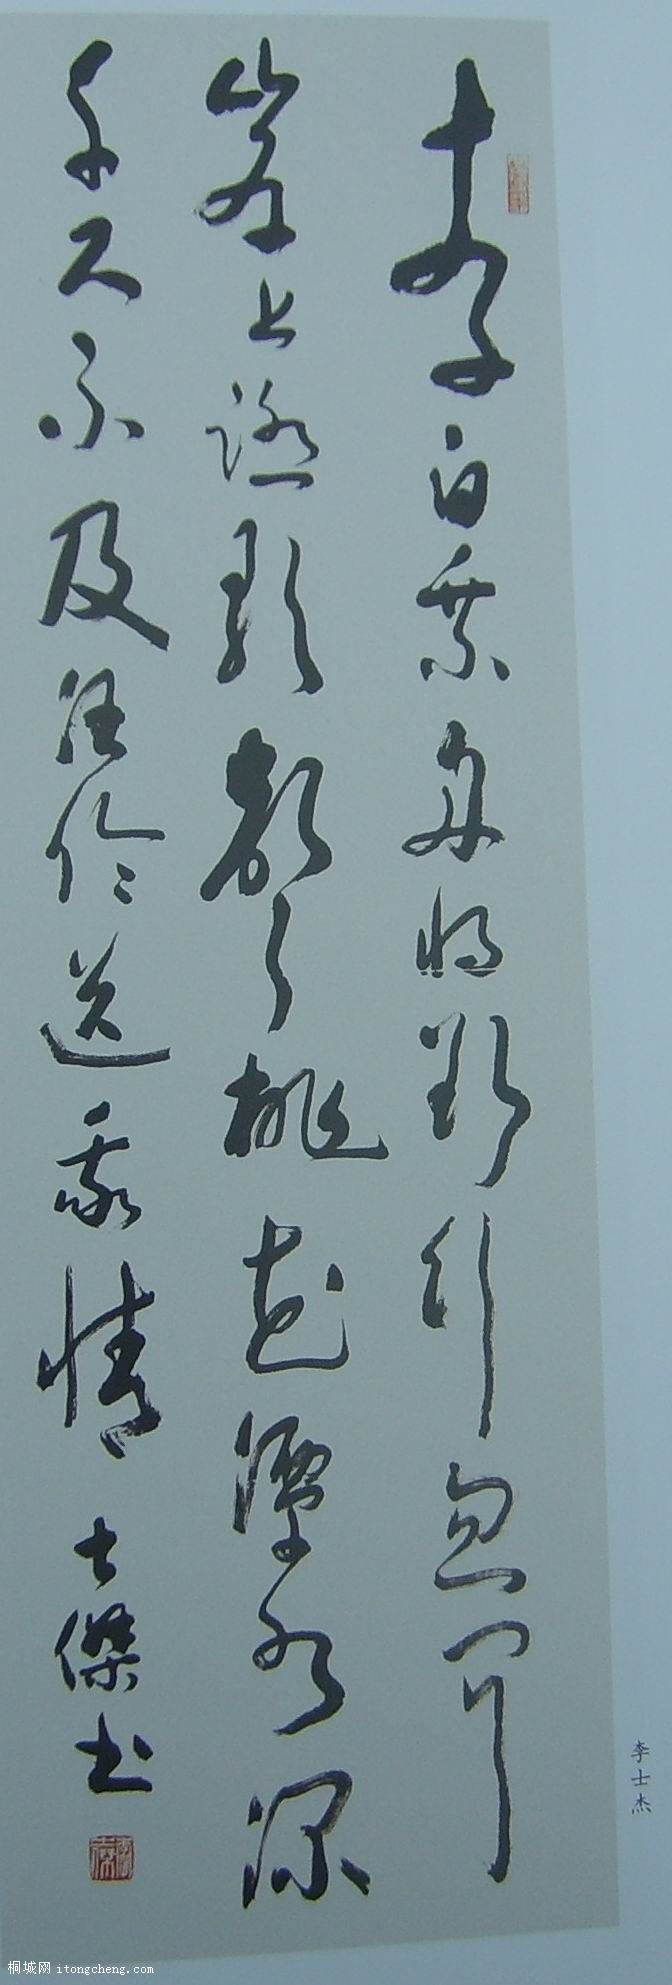 李白乘舟將欲行忽聞
岸上踏歌聲桃花潭水深
千尺不及汪倫送我情
士傑書
李士杰
桐城网 itongcheng.com